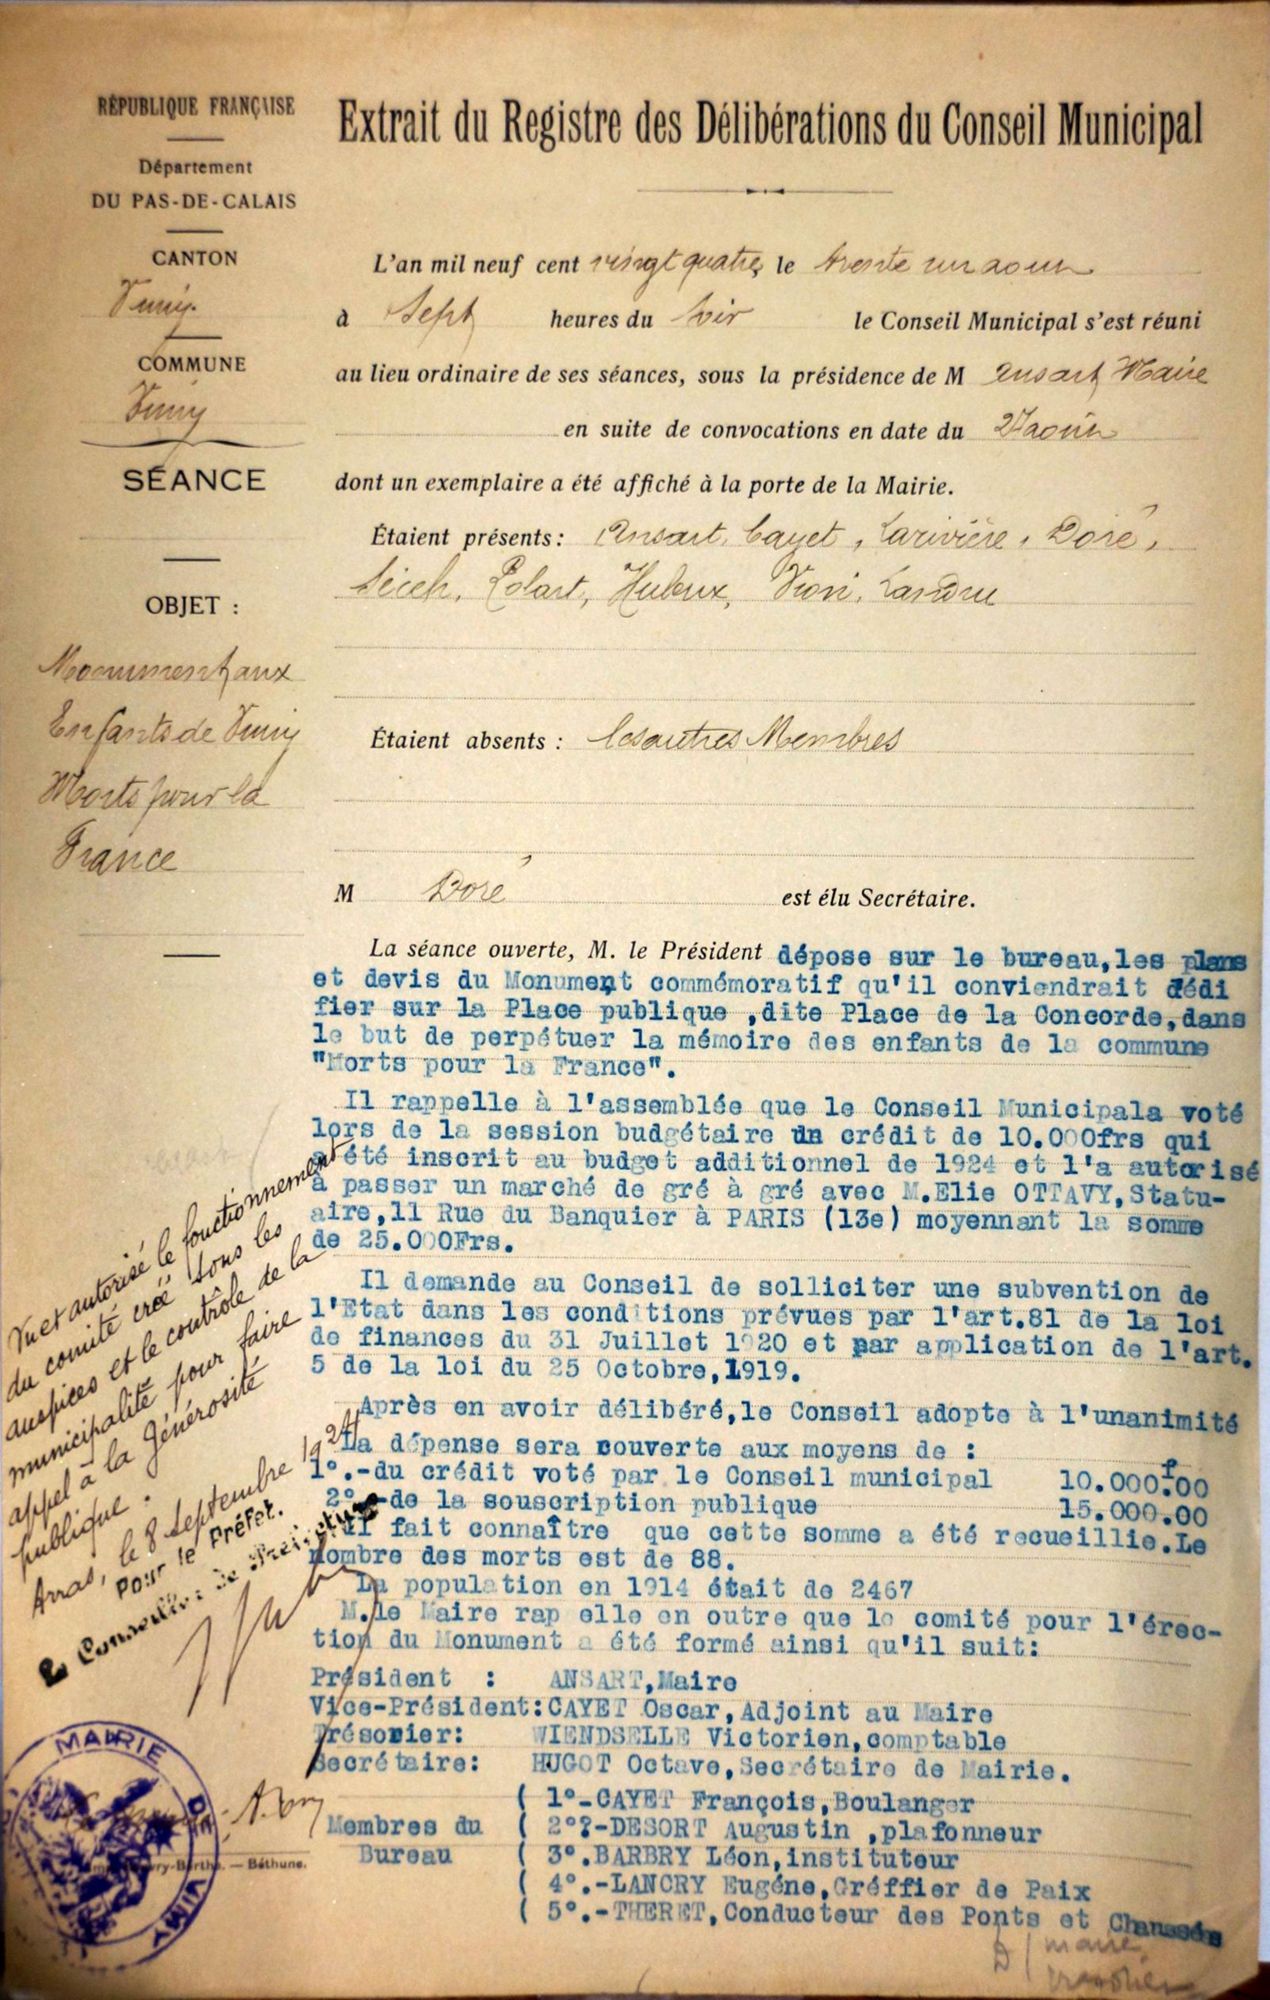 RÉPUBLIQUE FRANÇAISE
Département
DU PAS-DE-CALAIS
CANTON
Vimy
COMMUNE
Vimy
SÉANCE
OBJET :
Monument aux
Enfants de Vimy
Morts pour la
France
Extrait du Registre des Délibérations du Conseil Municipal
L'an mil neuf cent vingt quatre le trente un août
à Sept heures du soir le Conseil Municipal s'est réuni
au lieu ordinaire de ses séances, sous la présidence de M Ansart Maire
en suite de convocations en date du 27 août
dont un exemplaire a été affiché à la porte de la Mairie.
Étaient présents : Ansart, Cayet, Larivière, Doré,
Colart, Hubeux, Vion, Landru
Étaient absents : les autres Membres
M Doré est élu Secrétaire.
La séance ouverte, M. le Président dépose sur le bureau,les plans
et devis du Monument commémoratif qu'il conviendrait dédi
fier sur la Place publique ,dite Place de la Concorde,dans
le but de perpétuer la mémoire des enfants de la commune
"Morts pour la France".
Il rappelle à l'assemblée que le Conseil Municipala voté
lors de la session budgétaire un crédit de 10.000frs qui
a été inscrit au budget additionnel de 1924 et l'a autorisé
à passer un marché de gré à gré avec M.Elie OTTAVY,Statu-
aire,11 Rue du Banquier à PARIS (13e) moyennant la somme
de 25.000Frs.
Il demande au Conseil de solliciter une subvention de
l'Etat dans les conditions prévues par l'art.81 de la loi
de finances du 31 Juillet 1920 et par application de l'art.
5 de la loi du 25 Octobre,1919.
Après en avoir délibéré,le Conseil adopte à l'unanimité
La dépense sera couverte aux moyens de :
1°.-du crédit voté par le Conseil municipal 10.000f.00
2°.-de la souscription publique 15.000.00
Il fait connaître que cette somme a été recueillie.Le
nombre des morts est de 88.
La population en 1914 était de 2467
M.le Maire rap elle en outre que le comité pour l'érec-
tion du Monument a été formé ainsi qu'il suit:
Président : ANSART,Maire
Vice-Président:CAYET Oscar,Adjoint au Maire
Trésorier: WIENDSELLE Victorien,comptable
Secrétaire: HUGOT Octave,Secrétaire de Mairie.
( 1°-CAYET François,Boulanger
Membres du ( 2°?-DESORT Augustin ,plafonneur
Bureau ( 3°.BARBRY Léon,instituteur
( 4°.-LANCRY Eugéne,Gréffier de Paix
( 5°.-THERET,Conducteur des Ponts et Chaussées
Vu et autorisé le fonctionnement
du comité créé sous les
auspices et le contrôle de la
municipalité pour faire
appel à la générosité
publique.
Arras, le 8 septembre 1924
Pour le Préfet.
Le Conseiller de Préfecture
MAIRIE DE VIMY
— Béthune.
maire